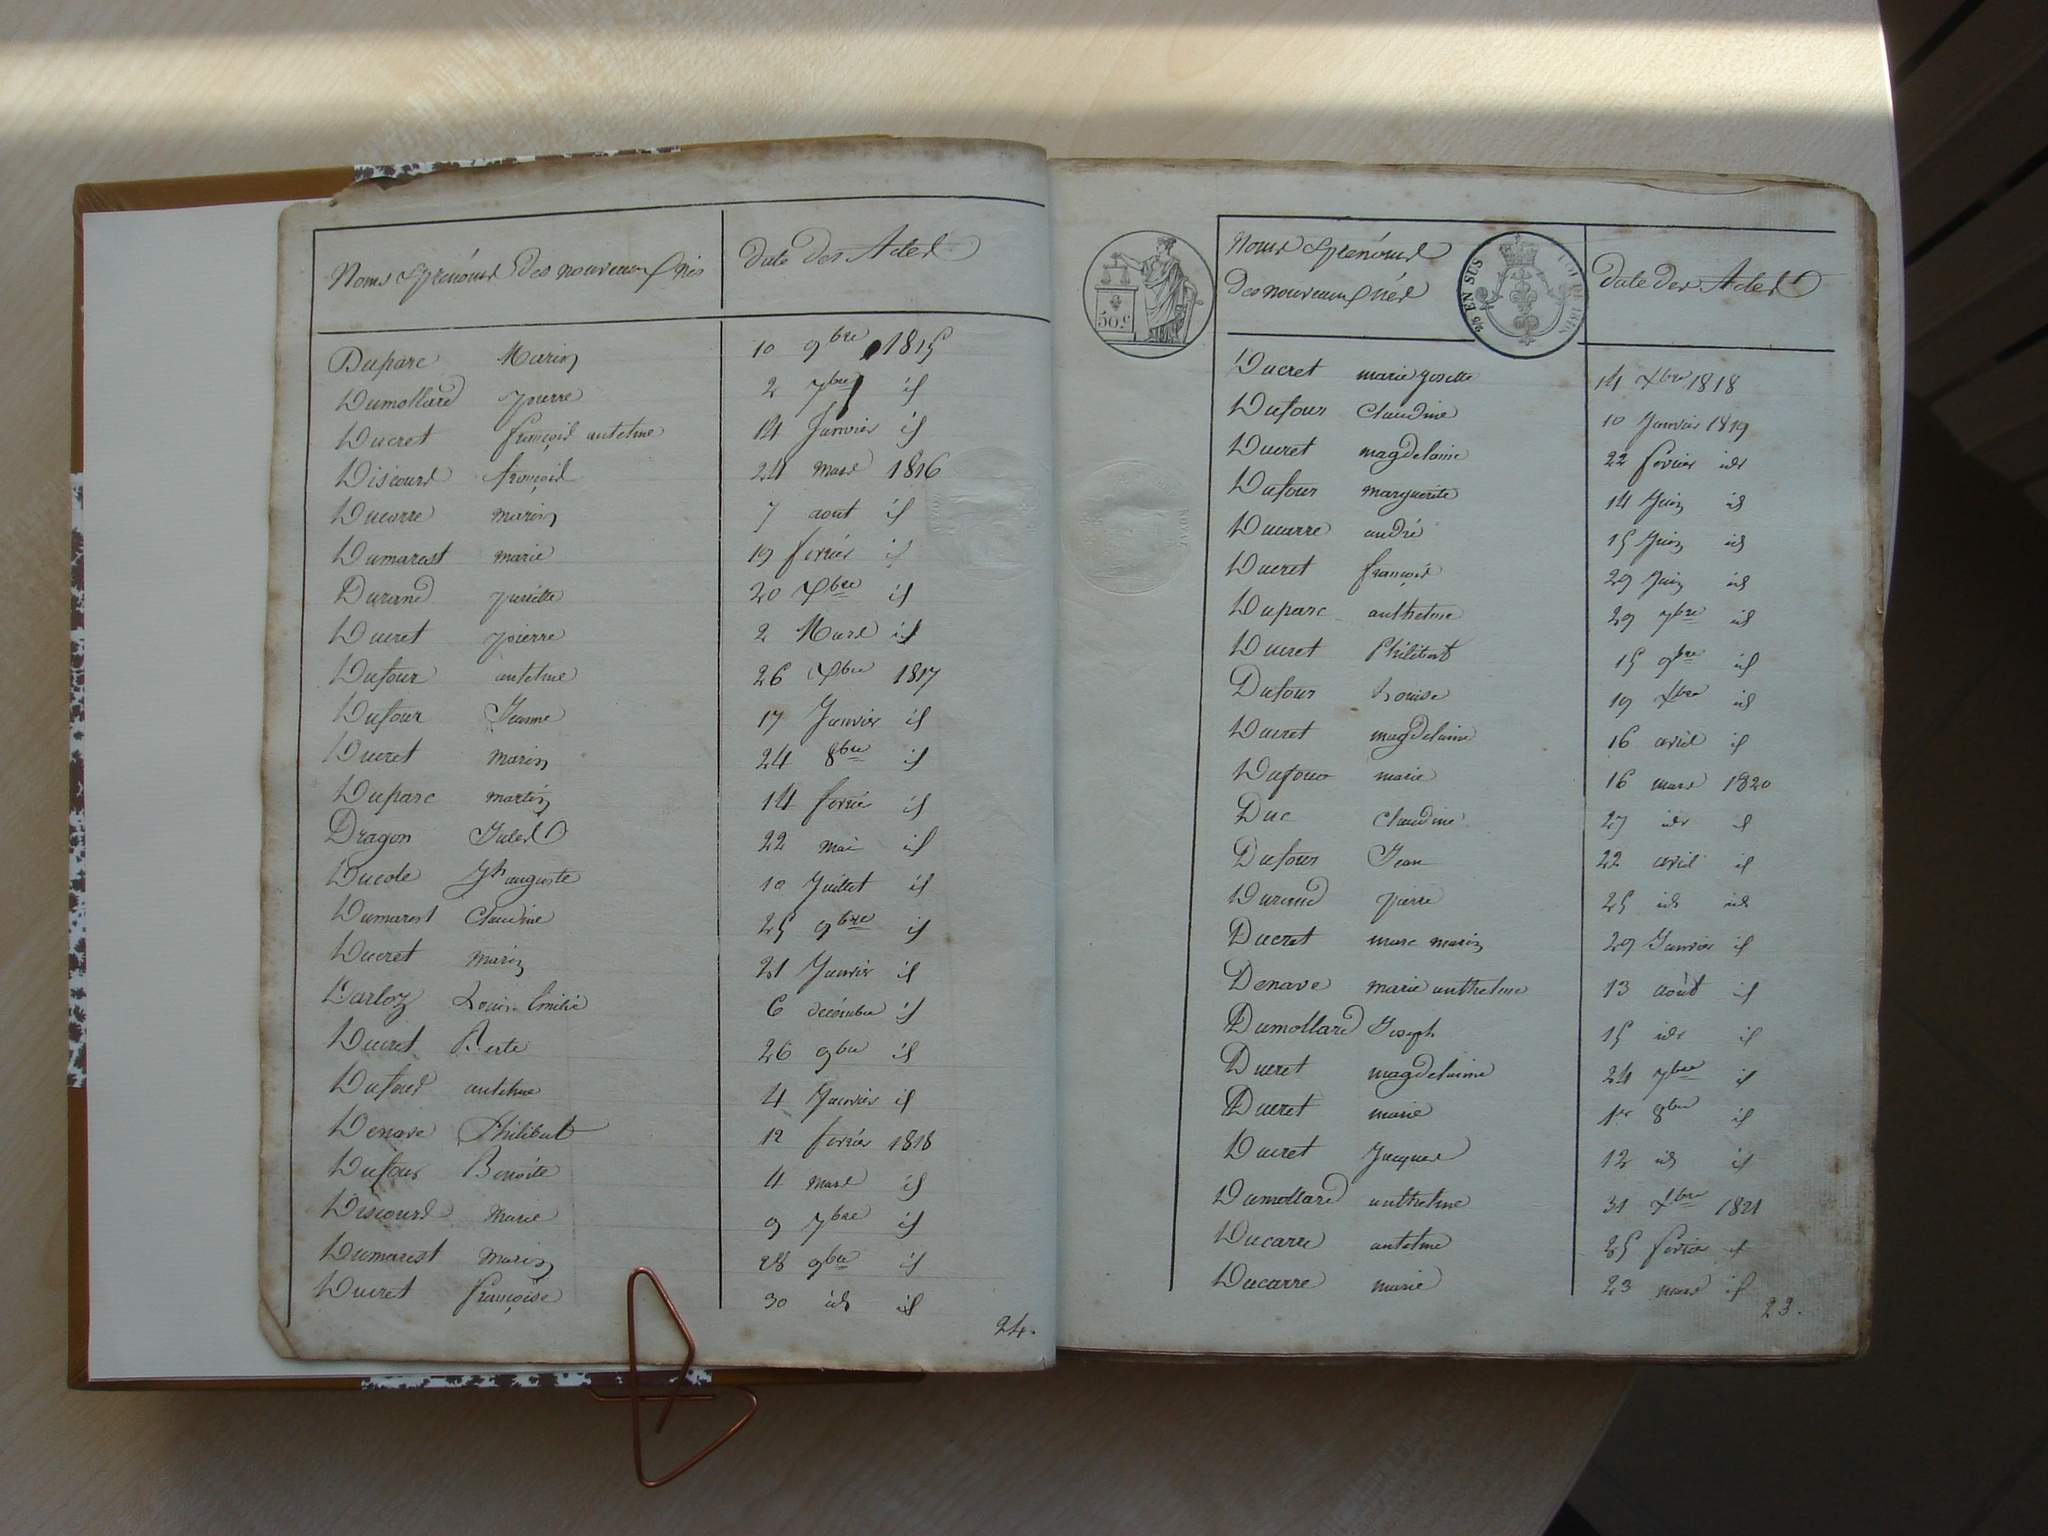 Noms & prénoms des nouveaux nés Date des Actes
Duparc Marin 10 9bre 1815
Dumollard pierre 2 7bre id
Ducret françois antelme 14 Janvier id
Discours françois 24 mars 1816
Ducarre marin 7 aout id
Dumarest marie 19 fevrier id
Durand 20 Xbre id
Ducret pierre 2 Mars id
Dufour antelme 26 Xbre 1817
Dufour Jeanne 17 Janvier id
Ducret marin 24 8bre id
Duparc martin 14 fevrier id
Dragon Jules 22 mai id
Ducole Jh auguste 10 Juillet id
Dumarest Claudine 25 9bre id
Ducret marin 21 Janvier id
Darloz Louis Emilie 6 décembre id
Ducret Berte 26 9bre id
Dufour antelme 4 Janvier id
Denave Philibert 12 fevrier 1818
Dufour Benoite 4 mars id
Discours marie 9 7bre id
Dumarest marin 28 9bre id
Ducret françoise 30 id id
24.
50 c.
2/5 EN SUS
Noms & prénoms
des nouveaux nés Date des Actes
Ducret marie Josette 14 Xbre 1818
Dufour Claudine 10 Janvier 1819
Ducret magdelaine 22 fevrier id
Dufour marguerite 14 Juin id
Ducarre andré 15 Juin id
Ducret françois 29 Juin id
Duparc anthelme 29 7bre id
Ducret Philibert 15 9bre id
Dufour Louise 19 Xbre id
Ducret magdelaine 16 avril id
Dufour marie 16 mars 1820
Duc Claudine 27 id id
Dufour Jean 22 avril id
Durand pierre 25 id id
Ducret marc marin 29 Janvier id
Denave marie anthelme 13 août id
Dumollard Joseph 15 id id
Ducret magdelaine 24 7bre id
Ducret marie 1er 8bre id
Ducret Jacques 12 id id
Dumollard anthelme 31 Xbre 1821
Ducarre antelme 25 fevrier id
Ducarre marie 23 mars id
23.